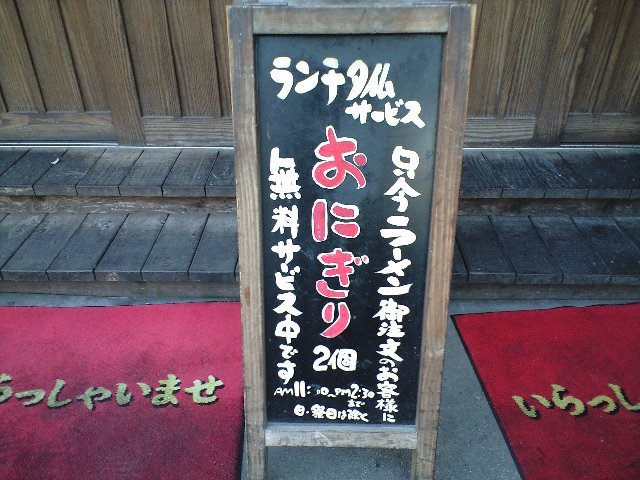 ランチタイム
サービス
只今ラーメン御注文のお客様に
おにぎり
2個
無料サービス中です
AM11:30〜PM2:30
まで
日・祭日は除く
らっしゃいませ
いらっし